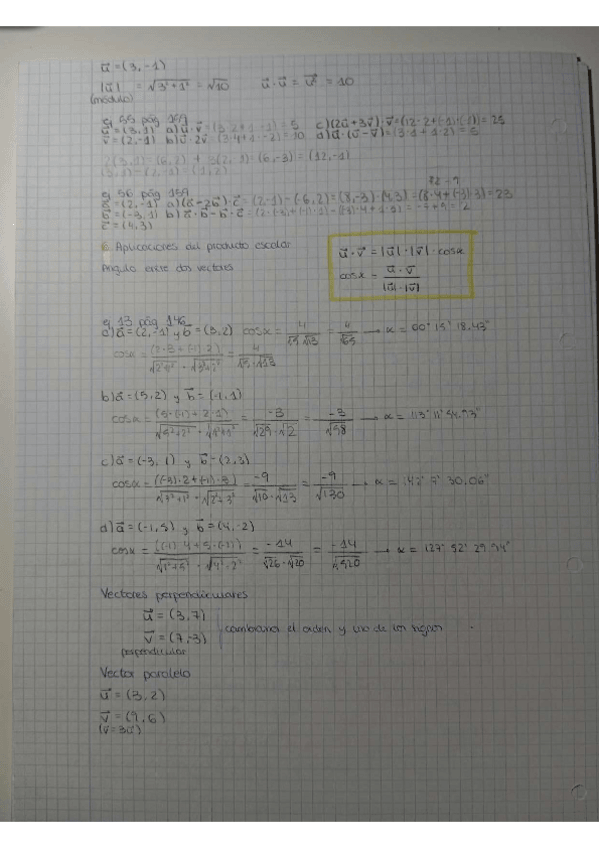 u = (3, -1)
|u| = √3²+1² = √10   u · u = u² = 10
(módulo)
ej 55 pág 159
u = (3, 1) a) u · v = (3·2+1·-1) = 5 c) (2u+3v) · v = (12·2+(-1)·(-1)) = 25
v = (2, -1) b) u · 2v = (3·4+1·-2) = 10 d) u · (u-v) = (3·1+1·2) = 5
ej 56 pág 159
a = (2, -1) a) (a-2b) · c = (2,-1)-(-6,2) = (8,-3)·(4,3) = (8·4+(-3)·3) = 23
b = (-3, 1) b) a · b - b · c
c = (4, 3)
6. Aplicaciones del producto escalar
Ángulo entre dos vectores
u · v = |u| · |v| · cosα
cosα = u · v / |u| · |v|
ej 13 pág 146
a) a = (2, -1) y b = (3, 2) cosα = 4/√5·√13 = 4/√65 → α = 60° 15' 18.43"
cosα = (2·3+(-1)·2)/√2²+1² · √3²+2² = 4/√5·√13
b) a = (5, 2) y b = (-1, 1)
cosα = (5·(-1)+2·1)/√5²+2² · √1²+1² = -3/√29·√2 = -3/√58 → α = 113° 11' 54.93"
c) a = (-3, 1) y b = (2, 3)
cosα = ((-3)·2+(-1)·3)/√3²+1² · √2²+3² = -9/√10·√13 = -9/√130 → α = 142° 7' 30.06"
d) a = (-1, 5) y b = (4, -2)
cosα = /√1²+5² · √4²+2² = -14/√26·√20 = -14/√520 → α = 127° 52' 29.94"
Vectores perpendiculares
u = (3, 7)
v = (7, -3) cambiamos el orden y uno de los signos
perpendicular
Vector paralelo
u = (3, 2)
v = (9, 6)
(v = 3u)